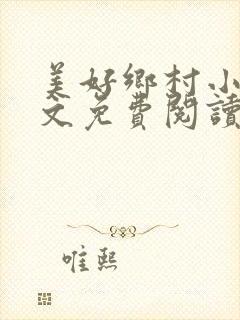 美好鄉村小
文免費閱讀
唯熙